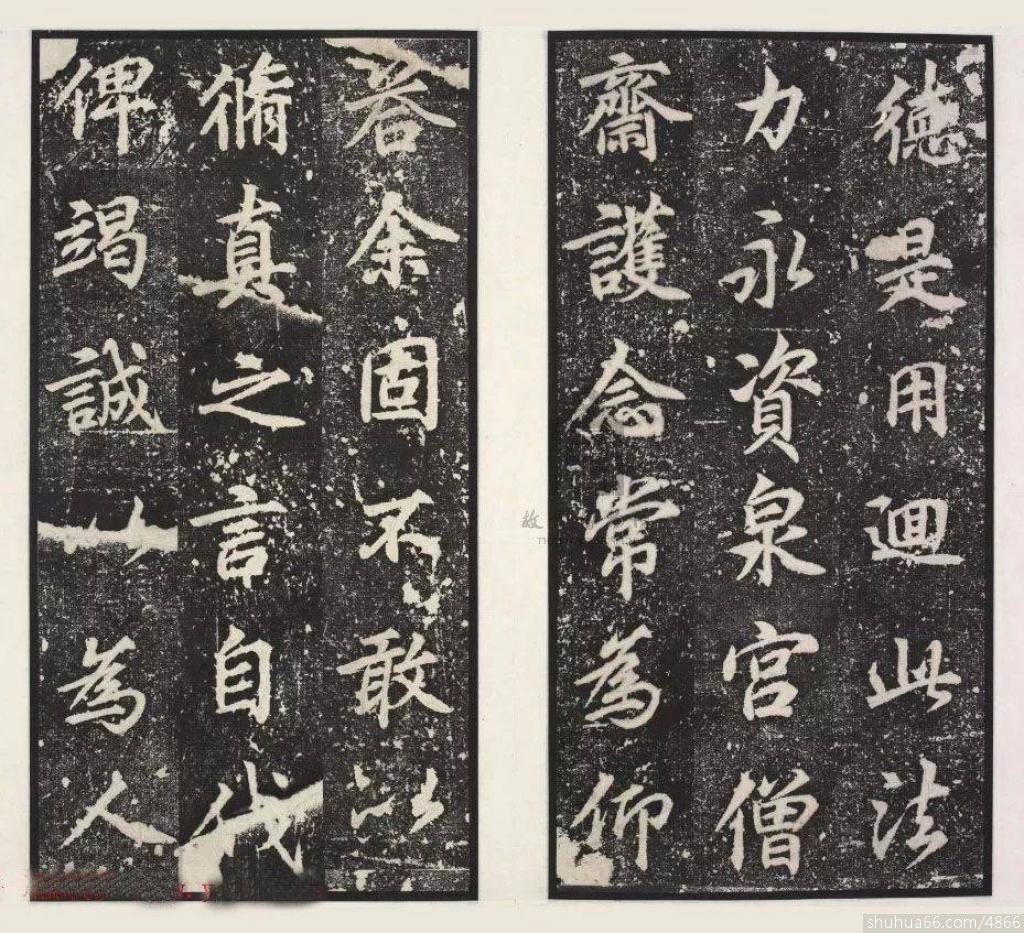 德是用迴此法
力永資泉宮僧
齋護念常為仰
荅余固不敢以
脩真之言自代
俾竭誠以為人
故
shuhua66.com/4866